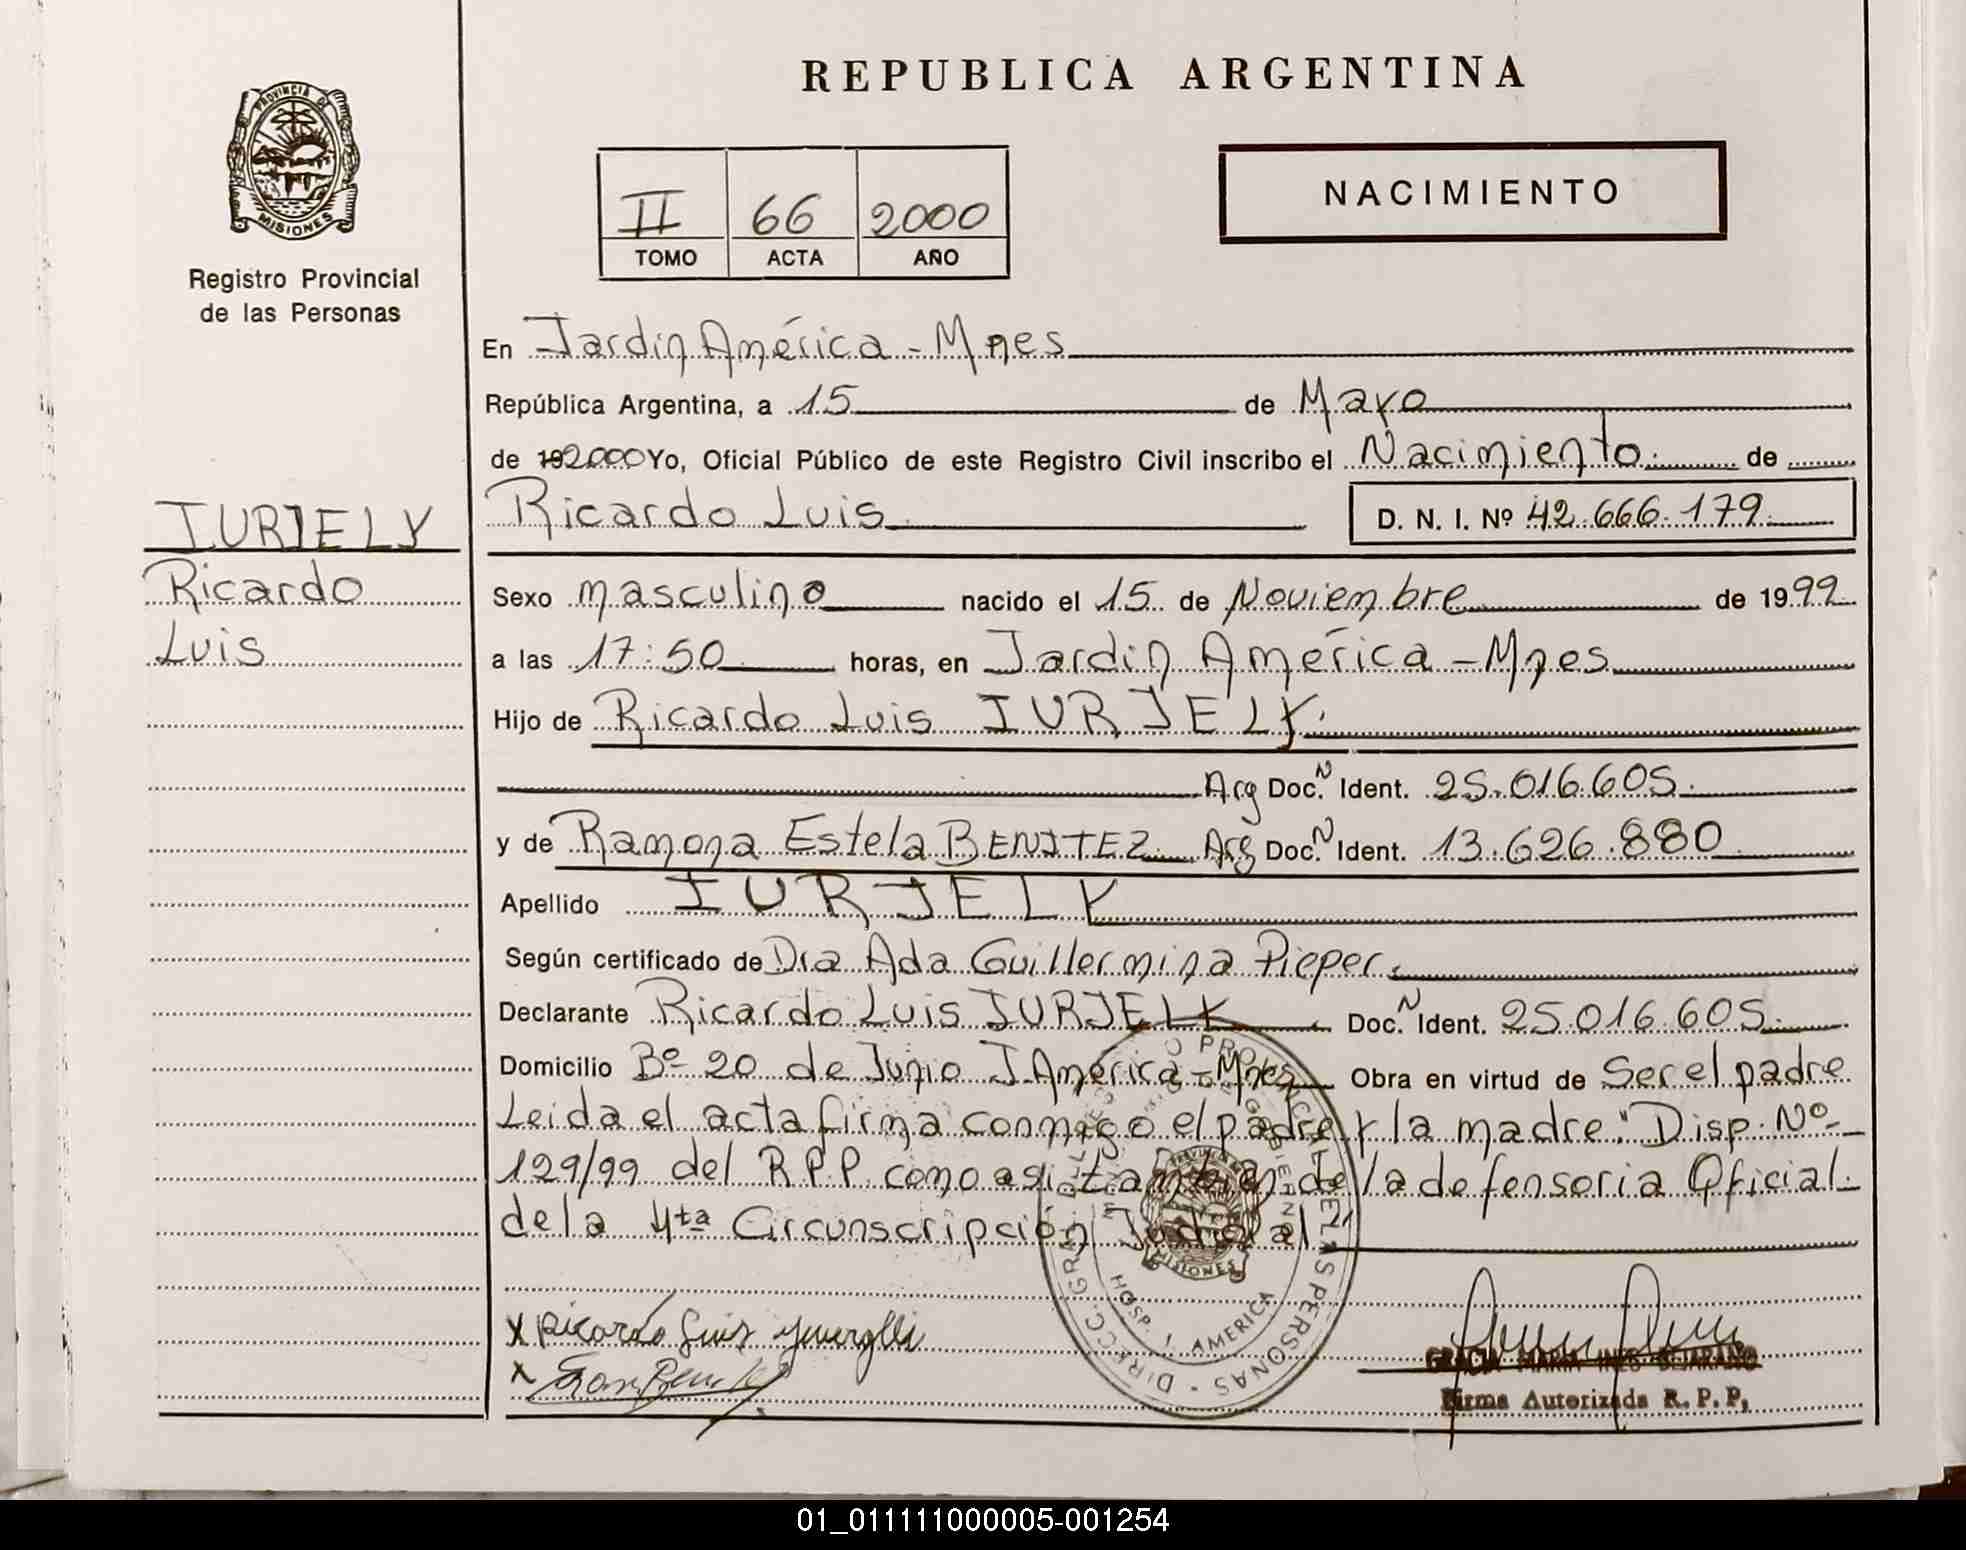 REPUBLICA ARGENTINA
PROVINCIA DE
MISIONES
Registro Provincial
de las Personas
II 66 2000
TOMO ACTA AÑO
NACIMIENTO
En Jardin América - Mnes
República Argentina, a 15 de Mayo
de 192000 Yo, Oficial Público de este Registro Civil inscribo el Nacimiento de
Ricardo Luis D. N. I. Nº 42.666.179
IURJELY
Ricardo
Luis
Sexo masculino nacido el 15 de Noviembre de 1999
a las 17:50 horas, en Jardin América - Mnes
Hijo de Ricardo Luis IURJELY
Arg Doc. N Ident. 25.016.605
y de Ramona Estela BENITEZ Arg Doc. N Ident. 13.626.880
Apellido IURJELY
Según certificado de Dra Ada Guillermina Pieper
Declarante Ricardo Luis IURJELY Doc. N Ident. 25.016.605
Domicilio Bº 20 de Junio J. América - Mnes Obra en virtud de Ser el padre
Leida el acta firma conmigo el padre y la madre. "Disp. Nº
129/99 del R.P.P. como asi tambien de la defensoria Oficial
de la 4ta Circunscripción Judicial"
HOSP. J. AMERICA
MISIONES
x Ricardo Luis
x
GRACIA MARIA INES BEJARANO
Firma Autorizada R. P. P.
01_011111000005-001254